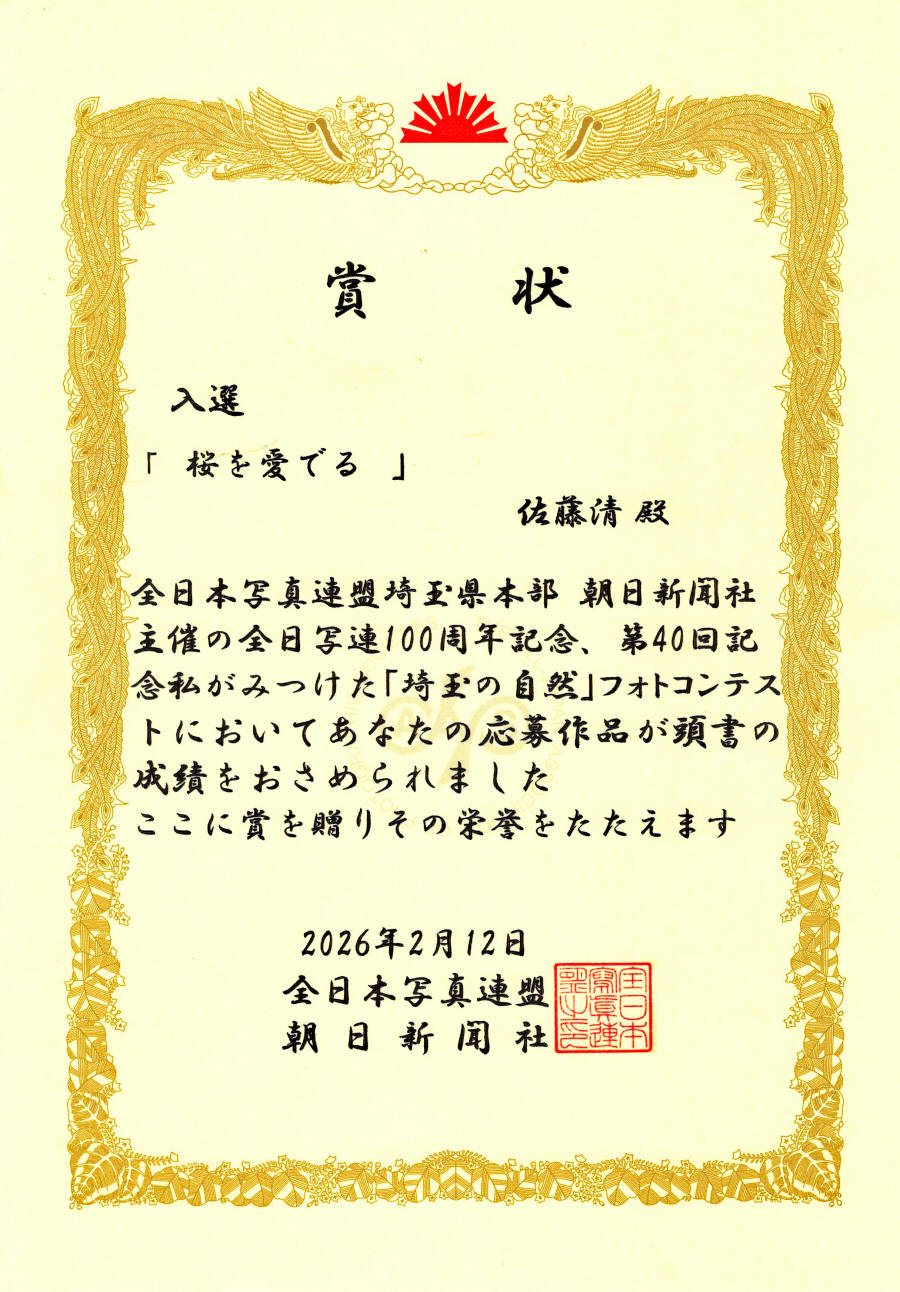 賞状
入選
「 桜を愛でる 」
佐藤清 殿
全日本写真連盟埼玉県本部 朝日新聞社
主催の全日写連100周年記念、第40回記
念私がみつけた「埼玉の自然」フォトコンテス
トにおいてあなたの応募作品が頭書の
成績をおさめられました
ここに賞を贈りその栄誉をたたえます
2026年2月12日
全日本写真連盟
朝日新聞社
全日本
寫眞連
盟之印